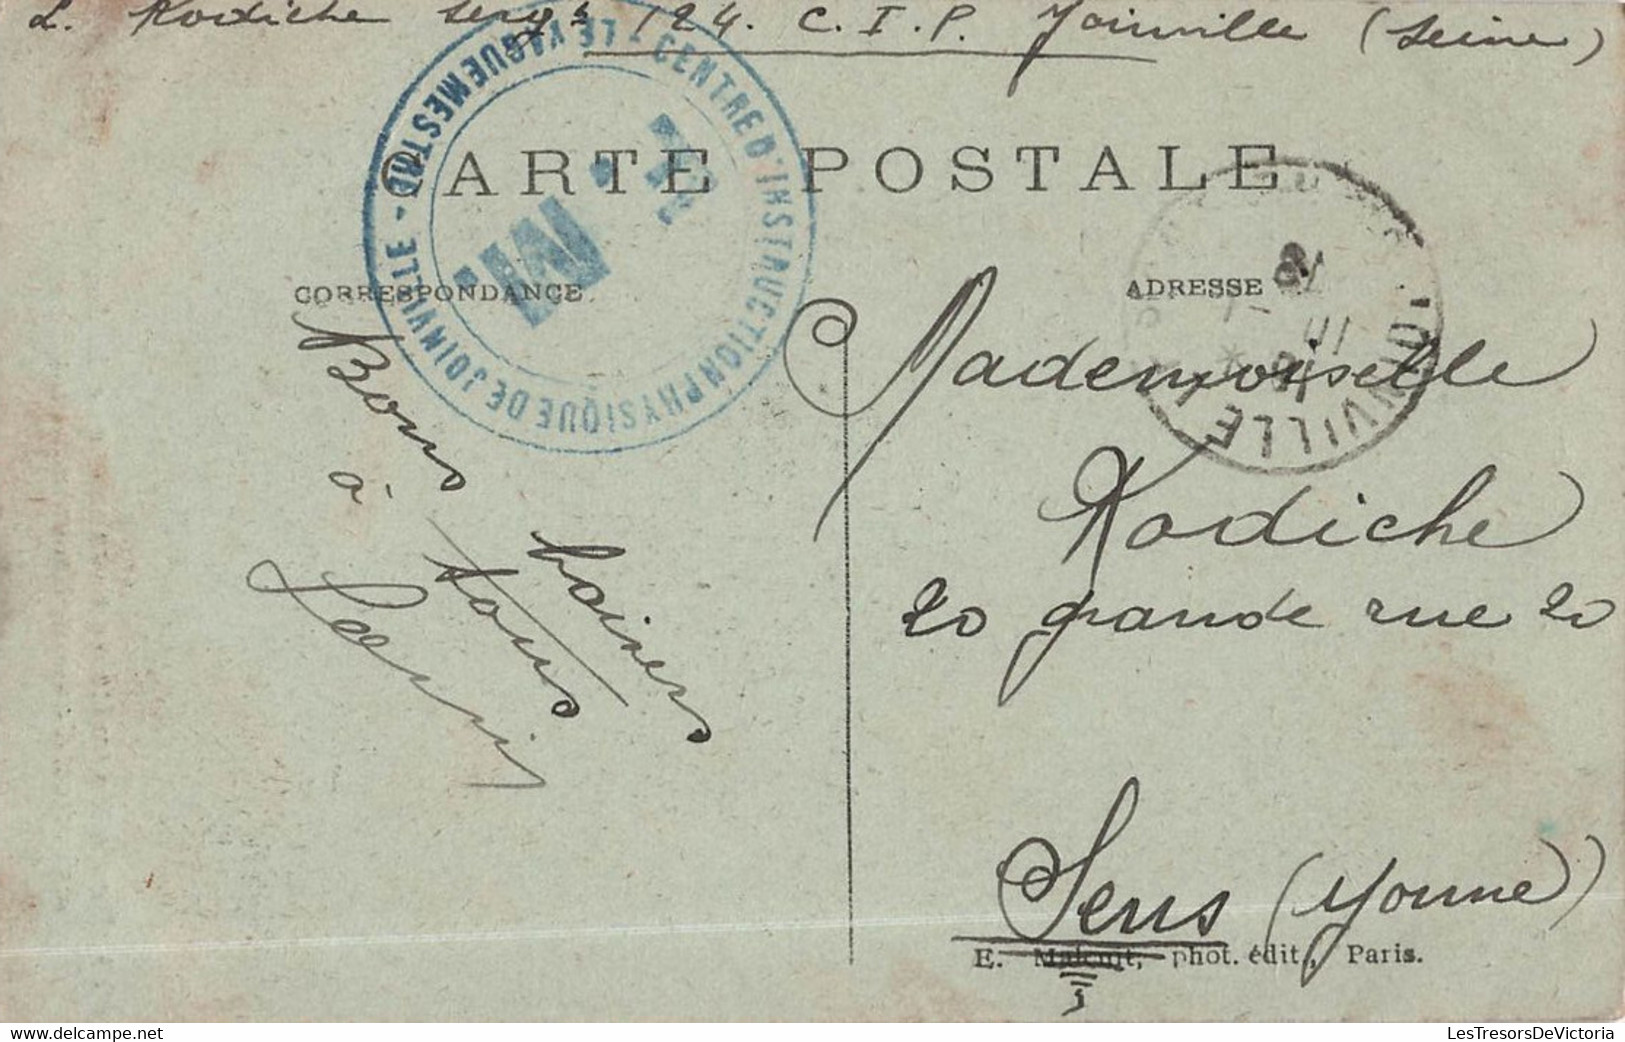 L. Kodiche serg<sup>t</sup> 124. C.I.P. Joinville (Seine)
LE VAGUEMESTRE - CENTRE D'INSTRUCTION PHYSIQUE DE JOINVILLE -
CARTE POSTALE
CORRESPONDANCE
ADRESSE
JOINVILLE
Bons baisers
à tous
Mademoiselle
Kodiche
20 grande rue 20
Sens (Yonne)
E. Malcuit, phot. édit., Paris.
LesTresorsDeVictoria